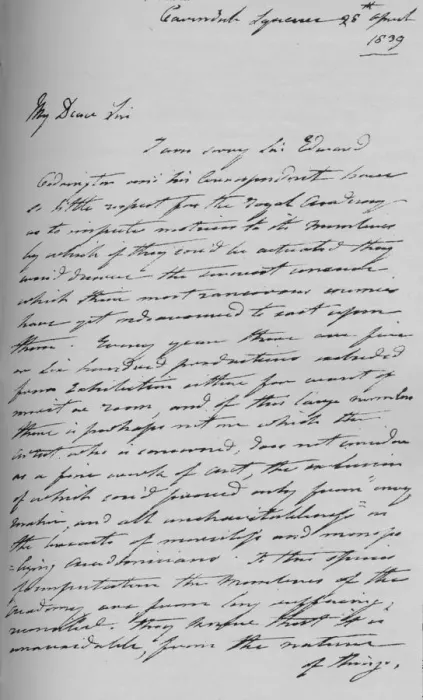 Cavendish Square 28th April
1839
My Dear Sir
I am sorry Sir Edward
Codrington and his Correspondent have
so little respect for the Royal Academy
as to impute motives to its Members
by which if they could be actuated they
would deserve the severest censure
which their most rancorous enemies
have yet endeavoured to cast upon
them. Every year there are five
or six hundred productions excluded
from Exhibition either for want of
merit or room, and of this large number
there is perhaps not one which the
artist who is concerned, does not consider
as a fine work of art, the exclusion
of which could proceed only from "envy
malice, and all uncharitableness" in
the hearts of merciless and monopo
=lizing Academicians. To this species
of imputation the Members of the
Academy are from long suffering,
reconciled. They conceive that it is
unavoidable, from the nature
of things,